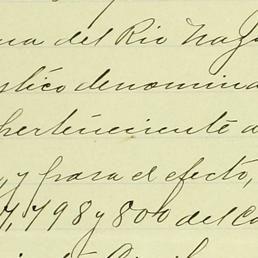 ua del Rio Naza
stico denomina
perteneciente a
y para el efecto,
7, 798 y 800 del Co